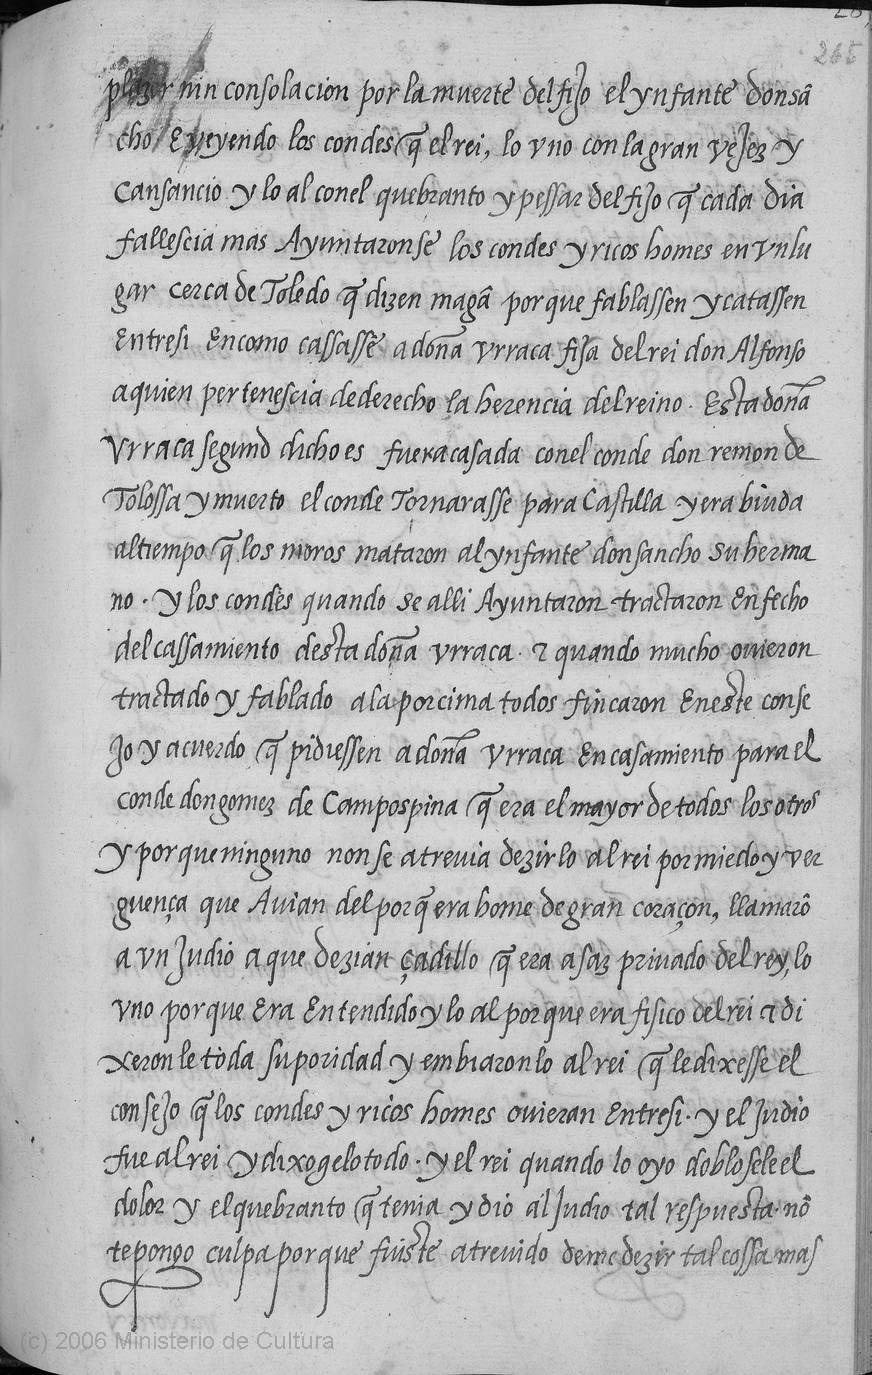 265
plazer nin consolacion por la muerte del fijo el ynfante don sã
cho / E veyendo los condes q̃ el rei, lo vno con la gran vejez y
Cansancio y lo al con el quebranto y pessar del fijo q̃ cada dia
fallescia mas Ayuntaronse los condes y ricos homes en vn lu
gar cerca de Toledo q̃ dizen magã porque fablassen y catassen
Entresi En como cassassẽ a doña vrraca fija del rei don Alfonso
a quien pertenescia de derecho la herencia del reino. Esta doña
Vrraca segund dicho es fuera casada con el conde don remon de
Tolossa y muerto el conde Tornarasse para Castilla y era biuda
al tiempo q̃ los moros mataron al ynfante don sancho su herma
no. y los condes quando se alli Ayuntaron tractaron En fecho
del cassamiento desta doña vrraca. & quando mucho ouieron
tractado y fablado a la por cima todos fincaron En este conse
jo y acuerdo q̃ pidiessen a doña vrraca En casamiento para el
conde don gomez de Campospina q̃ era el mayor de todos los otros
y porque ninguno non se atreuia dezirlo al rei por miedo y ver
guença que Auian del porq̃ era home de gran coraçon, llamarõ
a vn Judio a que dezian çadillo q̃ era asaz priuado del rey, lo
vno porque Era Entendido y lo al porque era fisico del rei & di
xeronle toda su poridad y embiaronlo al rei q̃ le dixesse el
consejo q̃ los condes y ricos homes ouieran Entresi. y el judio
fue al rei y dixogelo todo. y el rei quando lo oyo doblosele el
dolor y el quebranto q̃ tenia y dio al Judio tal respuesta. nõ
te pongo culpa porque fuiste atreuido de me dezir tal cossa mas
(c) 2006 Ministerio de Cultura